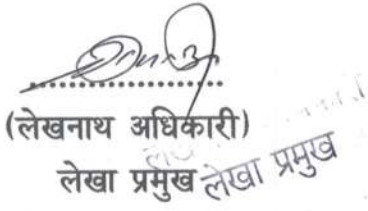 (लेखनाथ अधिकारी)
लेखा प्रमुख लेखा प्रमुख